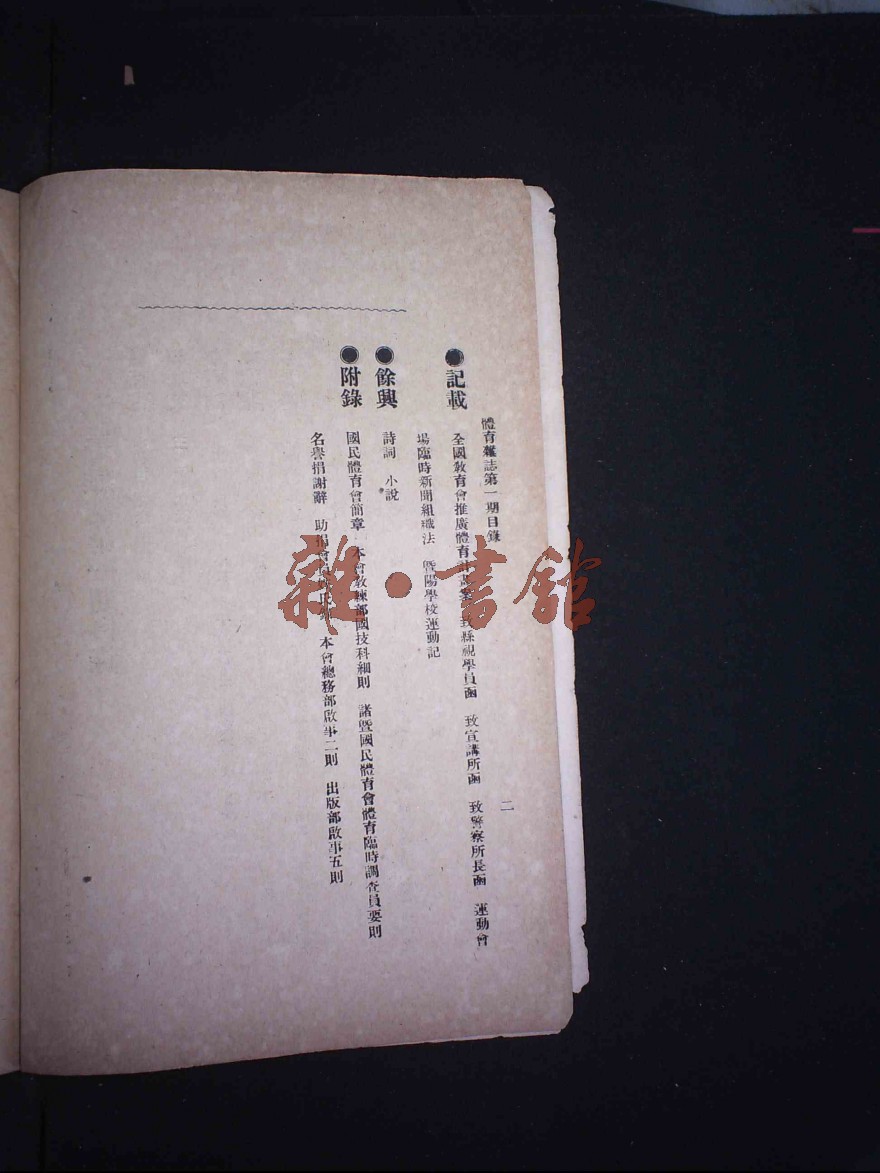 體育雜誌第一期目錄
二
●記載
全國教育會推廣體育計畫案 致縣視學員函 致宣講所函 致警察所長函 運動會
場臨時新聞組織法 暨陽學校運動記
●餘興
詩詞 小說
●附錄
國民體育會簡章 本會教練部國技科細則 諸暨國民體育會體育臨時調查員要則
名譽捐謝辭 助捐會 本會總務部啟事二則 出版部啟事五則
雜·書館